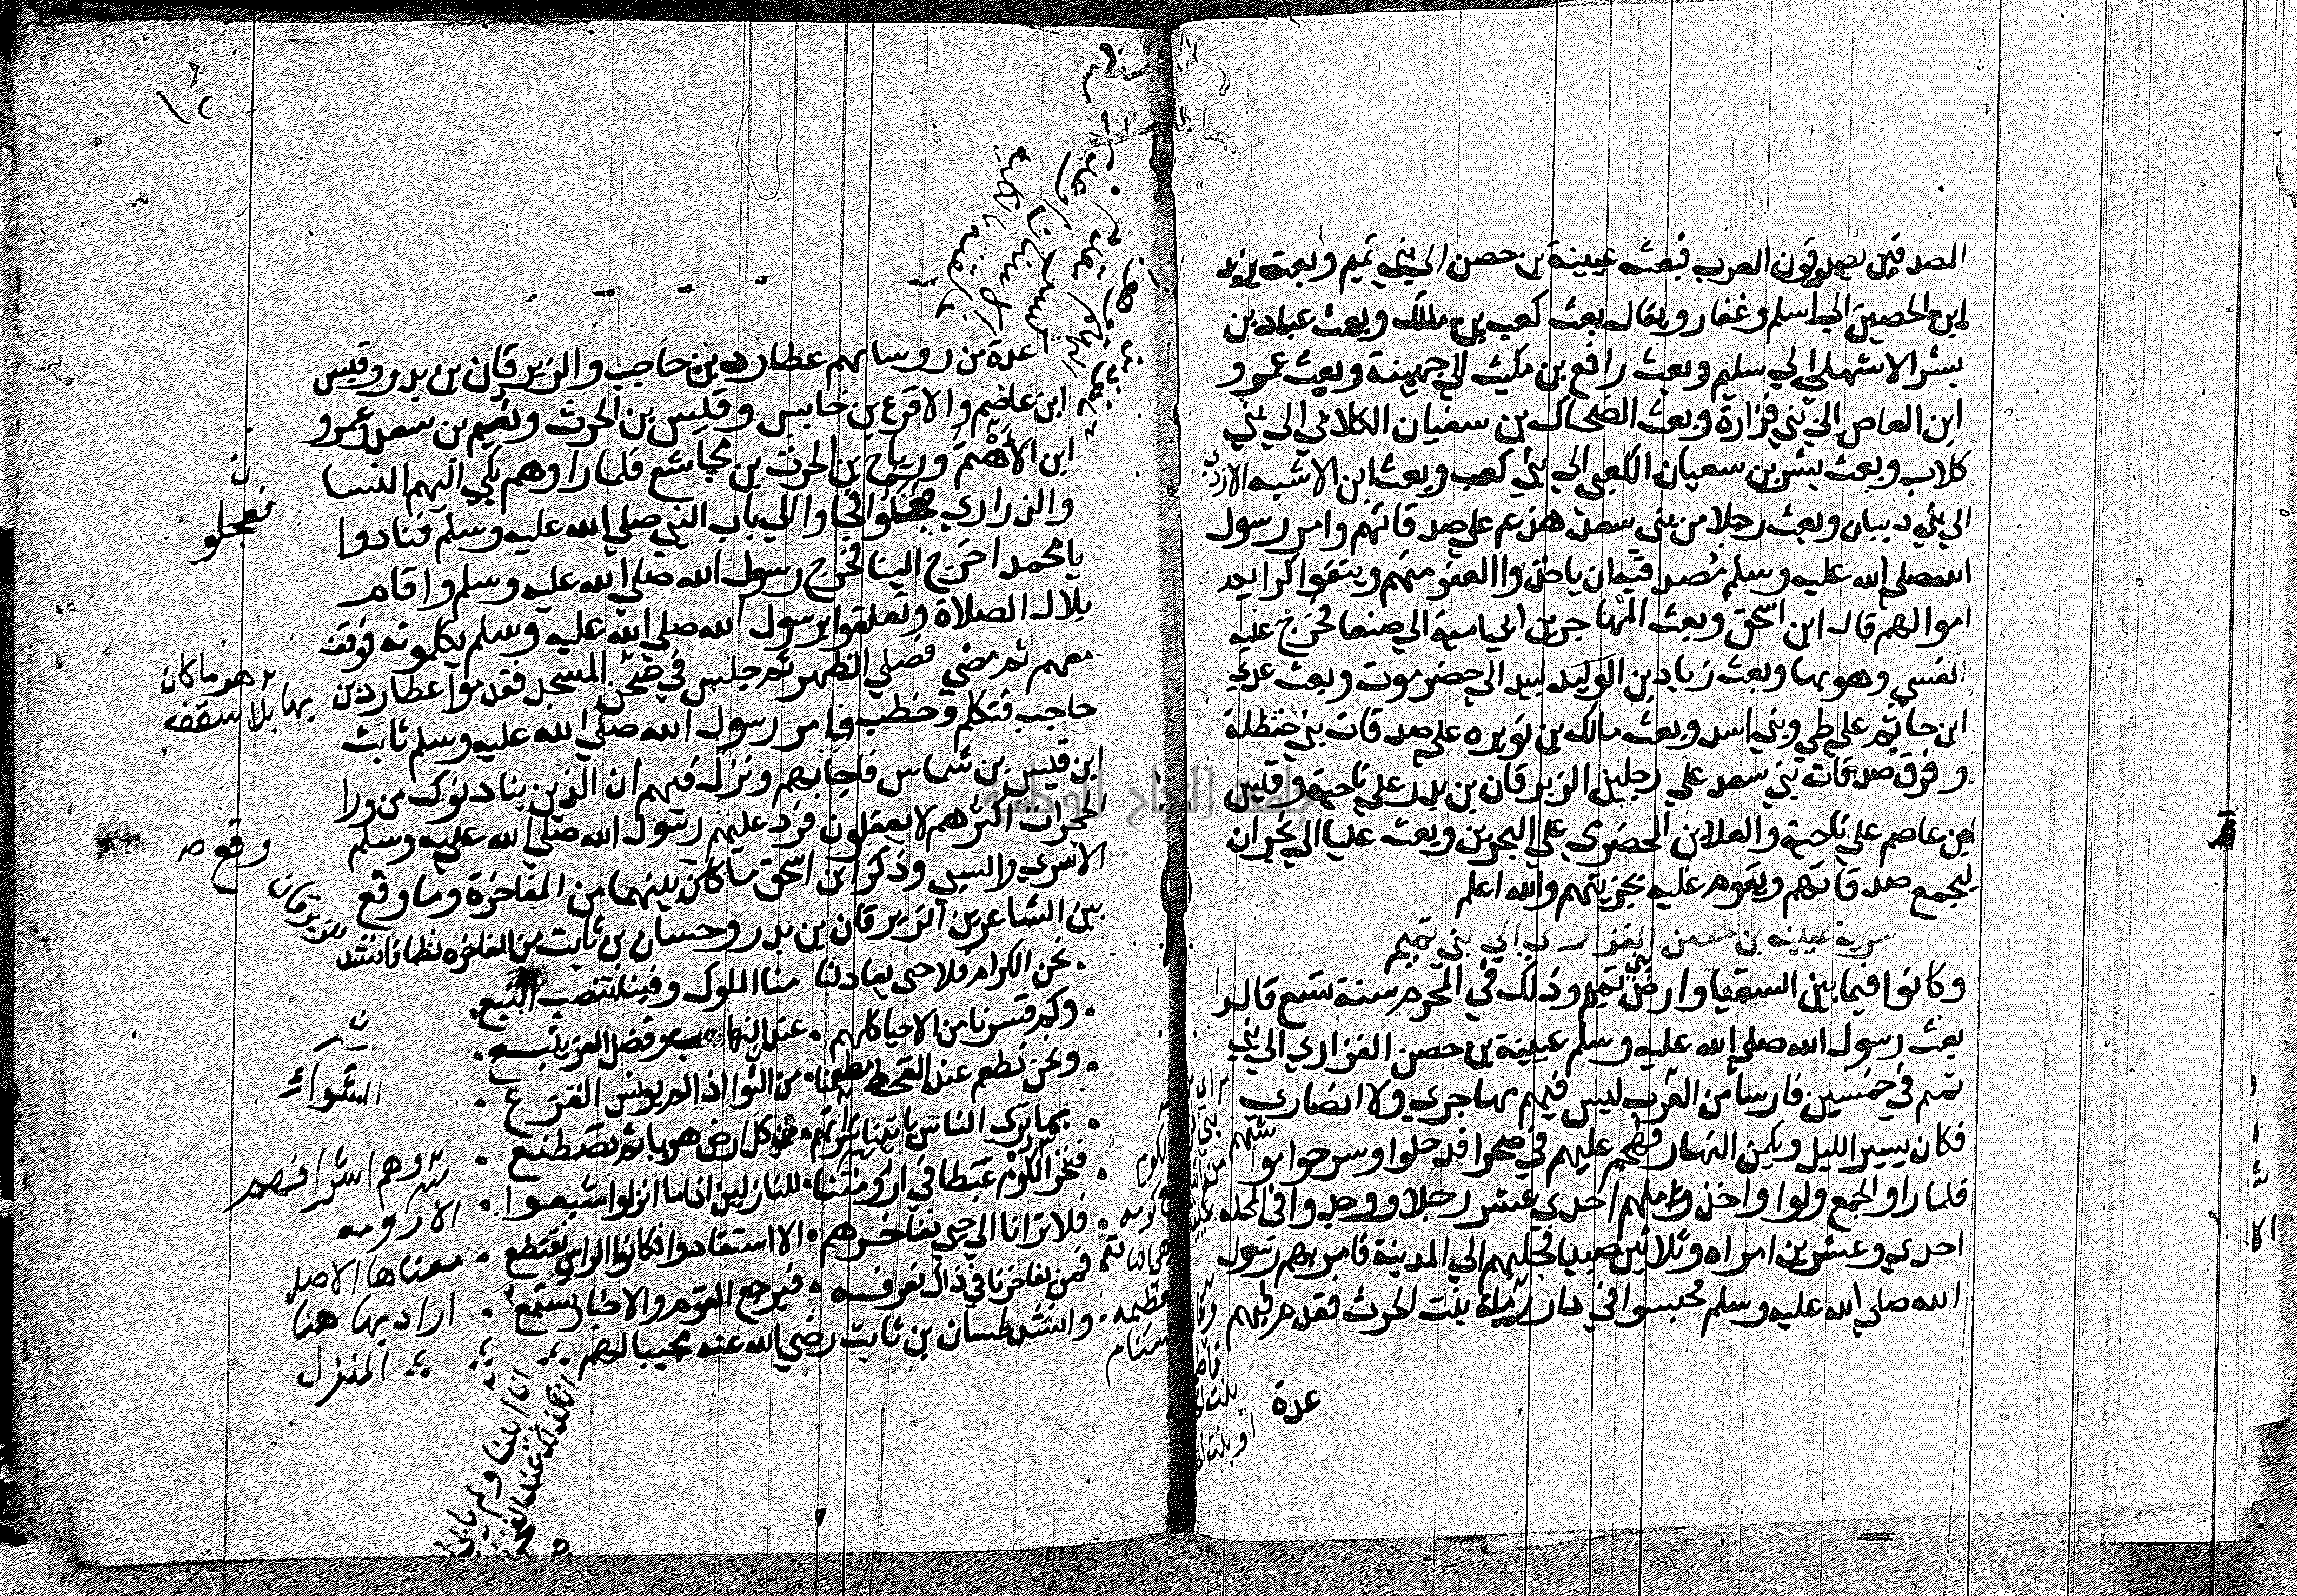 المصدقين يصدقون العرب فبعث عيينة بن حصن الي بني تميم وبعث يزيد
ابن الحصين الي اسلم وغفار ويقال بعث كعب بن ملك وبعث عباد بن
بشر الاشهلي الي سليم وبعث رافع بن مكيث الي جهينة وبعث عمرو
ابن العاص الي بني فزارة وبعث الضحاك بن سفيان الكلابي الي بني
كلاب وبعث بشر بن سفيان الكعبي الي بني كعب وبعث ابن اللتبيه الازدي
الي بني دبيان وبعث رجلا من بني سعد هذيم علي صدقاتهم وامر رسول
الله صلي الله عليه وسلم مصدقيه ان ياخذوا العفو منهم ويتقوا كرايم
اموالهم قال ابن اسحق وبعث المهاجر بن ابي امية الي صنعا فخرج عليه
العنسي وهو بها وبعث زياد بن الوليد لبيد الي حضرموت وبعث عدي
ابن حاتم علي طي وبني اسد وبعث مالك بن نويره علي صدقات بني حنظلة
وفرق صدقات بني سعد علي رجلين الزبرقان بن بدر علي ناحية وقيس
بن عاصم علي ناحية والعلا بن الحضرمي علي البحرين وبعث عليا الي نجران
ليجمع صدقاتهم ويقدم عليه بجزيتهم والله اعلم
سرية عيينه بن حصن الفزاري الي بني تميم
وكانوا فيما بين السقيا وارض بني تميم وذلك في المحرم سنة تسع قالوا
بعث رسول الله صلي الله عليه وسلم عيينة بن حصن الفزاري الي بني
تميم في خمسين فارسا من العرب ليس فيهم مهاجري ولا انصاري
فكان يسير الليل ويكمن النهار فهجم عليهم في صحرا قد حلوا وسرحوا مواشيهم
فلما راوا الجمع ولوا واخذ منهم احدي عشر رجلا ووجدوا في المحله
احدي وعشرين امراه وثلاثين صبيا فجلبهم الي المدينة فامر بهم رسول
الله صلي الله عليه وسلم فحبسوا في دار رملة بنت الحرث فقدم فيهم
عدة
١٢
عدة من روسايهم عطارد بن حاجب والزبرقان بن بدر وقيس
ابن عاصم والاقرع بن حابس وقيس بن الحرث ونعيم بن سعد وعمرو
ابن الاهتم ورباح بن الحرث بن مجاشع فلما راوهم بكي اليهم النسا
والذراري فعجلوا فجاوا الي باب النبي صلي الله عليه وسلم فنادوا
ن
فعجلو
يا محمد اخرج الينا فخرج رسول الله صلي الله عليه وسلم واقام
بلال الصلاة وتعلقوا برسول الله صلي الله عليه وسلم يكلمونه فوقف
معهم ثم مضي فصلي الظهر ثم جلس في صحن المسجد فقدموا عطارد بن
هو ما كان
بها بلا سقف
حاجب فتكلم وخطب فامر رسول الله صلي الله عليه وسلم ثابت
ابن قيس بن شماس فاجابهم ونزل فيهم ان الذين ينادونك من ورا
الحجرات اكثرهم لا يعقلون فرد عليهم رسول الله صلي الله عليه وسلم
الاسري والسبي وذكر ابن اسحق ما كان بينهما من المفاخرة وما وقع
وقع
بين الشاعرين الزبرقان بن بدر وحسان بن ثابت من المفاخره نظما فانشد
الزبرقان
نحن الكرام فلا حي يعادلنا منا الملوك وفينا تنصب البيع
وكم قسرنا من الاحيا كلهم عند النهاب وفضل العز يتبع
ونحن نطعم عند القحط مطعمنا من الشوا اذا لم يونس القزع
الشواء
بما تري الناس تاتينا سراتهم من كل ارض هويا ثم نصطنع
وهم اشرافهم
فننحر الكوم عبطا في ارومتنا للنازلين اذا ما انزلوا شبعوا
الارومه
فلا ترانا الي حي نفاخرهم الا استفادوا فكانوا الراس يقتطع
معناها الاصل
فمن يفاخرنا في ذاك نعرفه فيرجع القوم والاخبار تستمع
اراد بها هنا
وانشد حسان بن ثابت رضي الله عنه مجيبا لهم
المنزل
انا ابينا ولم يابي
انا كذلك عند الفخر